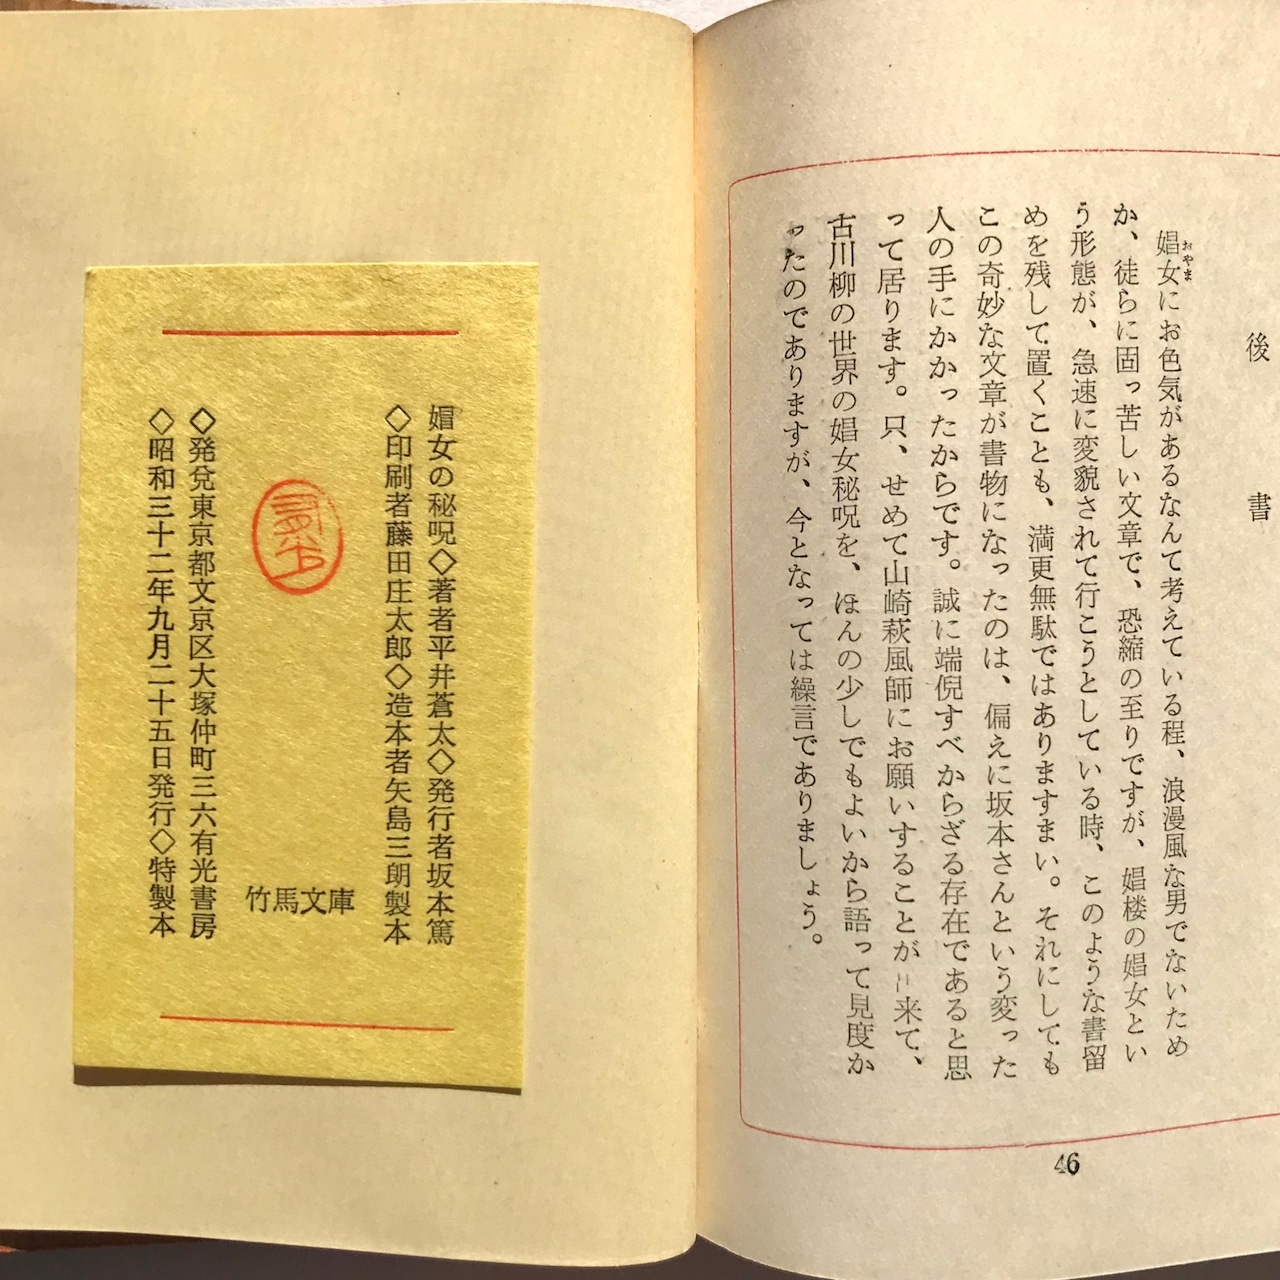 後書
娼女にお色気があるなんて考えている程、浪漫風な男でないため
おやま
か、徒らに固っ苦しい文章で、恐縮の至りですが、娼楼の娼女とい
う形態が、急速に変貌されて行こうとしている時、このような書留
めを残して置くことも、満更無駄ではありますまい。それにしても
この奇妙な文章が書物になったのは、偏えに坂本さんという変った
人の手にかかったからです。誠に端倪すべからざる存在であると思
って居ります。只、せめて山崎萩風師にお願いすることが出来て、
古川柳の世界の娼女秘呪を、ほんの少しでもよいから語って見度か
ったのでありますが、今となっては繰言でありましょう。
46
娼女の秘呪◇著者平井蒼太◇発行者坂本篤
◇印刷者藤田庄太郎◇造本者矢島三朗製本
竹馬文庫
◇発兌東京都文京区大塚仲町三六有光書房
◇昭和三十二年九月二十五日発行◇特製本